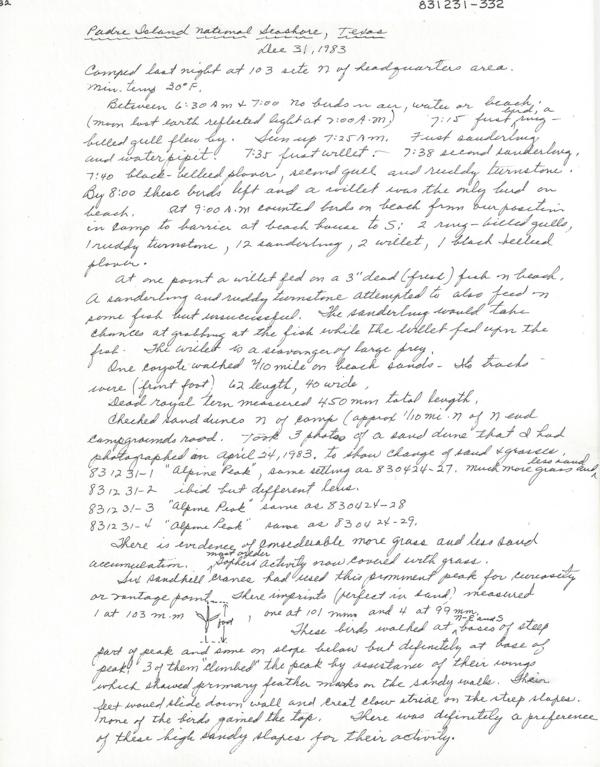 831231-332
32
Padre Island National Seashore, Texas
Dec 31, 1983
Camped last night at 103 site N of headquarters area.
Min. temp 20°F.
Between 6:30 AM & 7:00 No birds in air, water or beach.
(moon lost earth reflected light at 7:00 A.M.) 7:15 first bird, a ring-
billed gull flew by. Sun up 7:25 A.M. First sanderling
and water pipit. 7:35 first willet. - 7:38 second sanderling,
7:40 black-bellied plover, second gull and ruddy turnstone.
By 8:00 these birds left and a willet was the only bird on
beach. At 9:00 A.M counted birds on beach from our position
in camp to barrier at beach house to S: 2 ring-billed gulls,
1 ruddy turnstone, 12 sanderling, 2 willet, 1 black bellied
plover.
At one point a willet fed on a 3" dead (fresh) fish on beach.
A sanderling and ruddy turnstone attempted to also feed on
same fish but unsucissful. The sanderling would take
chances at grabbing at the fish while the willet fed upon the
fish. The willet is a scavanger of large prey.
One coyote walked 4/10 mile on beach sands - Its tracks
were (front foot) 62 length, 40 wide,
Dead royal tern measured 450 mm total length.
Checked sand dunes N of camp (approx 1/10 mi. N of N end
campgrounds road. Took 3 photos of a sand dune that I had
photographed on April 24, 1983, to show change of sand & grasses.
831231-1 "Alpine Peak", same setting as 830424-27. Much more grass and less sand
831231-2 ibid but different lens.
831231-3 "Alpine Peak" same as 830424-28
831231-4 "Alpine Peak" same as 830424-29.
There is evidence of considerable more grass and less sand
accumulation. most older Gophers activity now covered with grass.
Six sandhill cranes had used this prominent peak for curiosity
or vantage point. There imprints (perfect in sand) measured
1 at 103 m.m foot, one at 101 mm and 4 at 99 mm.
These birds walked at N-E and S bases of steep
part of peak and some on slope below but definitely at base of
peak. 3 of them "climbed" the peak by assistance of their wings
which showed primary feather marks on the sandy walls. Their
feet would slide down wall and creat claw striae on the steep slopes.
None of the birds gained the top. There was definitely a preference
of these high sandy slopes for their activity.